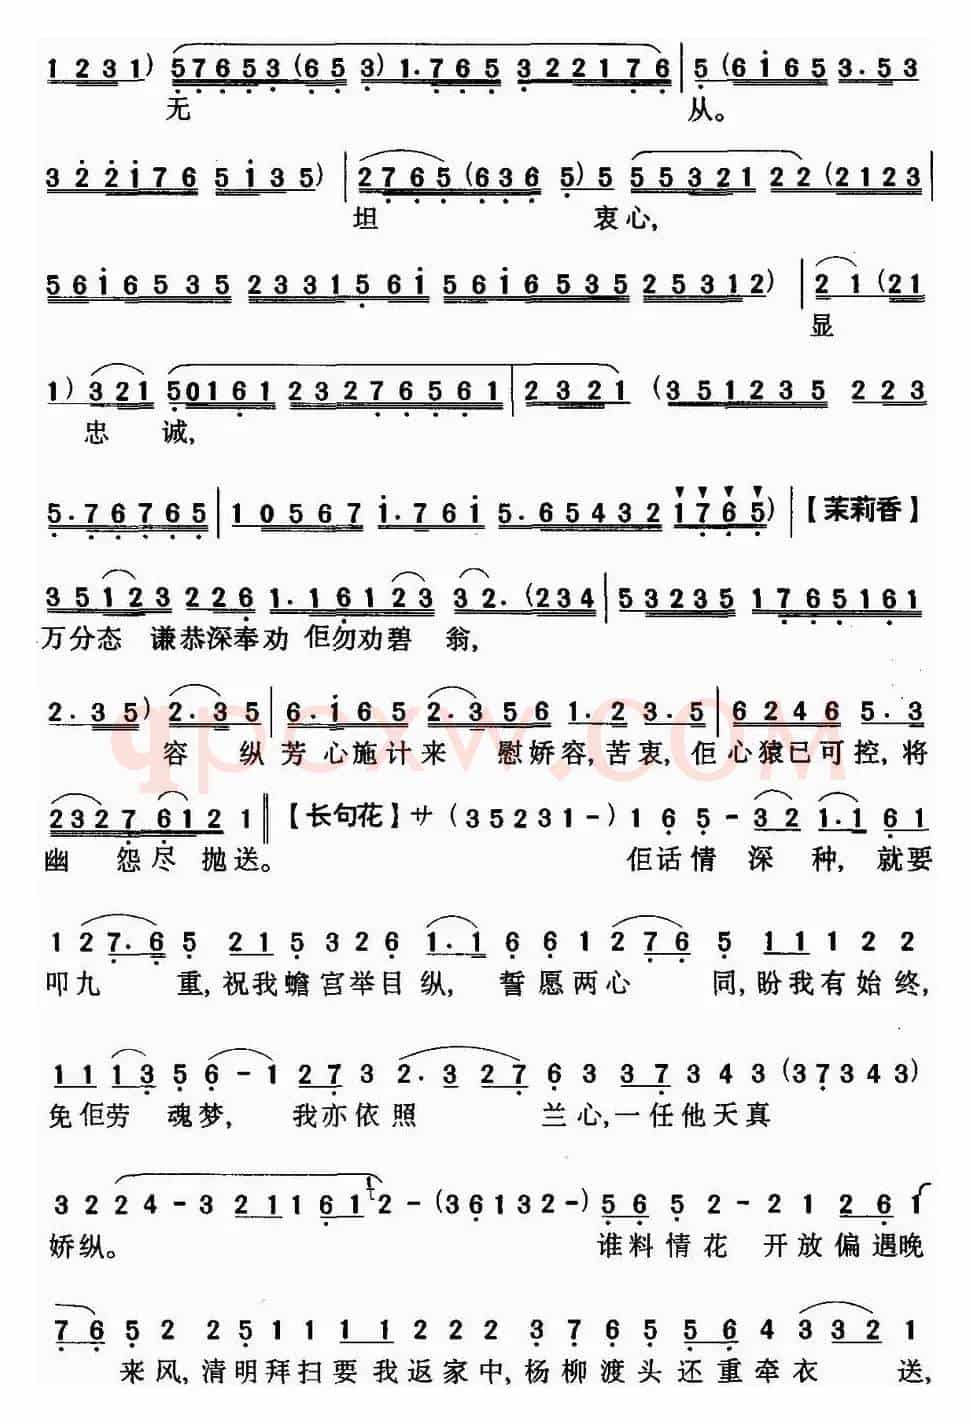 1 2 3 1) 5 7 6 5 3 (6 5 3) 1. 7 6 5 3 2 2 1 7 6 | 5 (6 i 6 5 3. 5 3
无 从。
3 2 2 i 7 6 5 i 3 5) | 2 7 6 5 (6 3 6 5) 5 5 5 3 2 1 2 2 (2 1 2 3 |
坦 衷心,
5 6 i 6 5 3 5 2 3 3 1 5 6 i 5 6 i 6 5 3 5 2 5 3 1 2) | 2 1 (2 1
显
1) 3 2 1 5 0 1 6 1 2 3 2 7 6 5 6 1 | 2 3 2 1 (3 5 1 2 3 5 2 2 3
忠 诚,
5. 7 6 7 6 5 | 1 0 5 6 7 i. 7 6 i 5. 6 5 4 3 2 1 7 6 5) | 【茉莉香】
3 5 1 2 3 2 2 6 1. 1 6 1 2 3 3 2. (2 3 4 | 5 3 2 3 5 1 7 6 5 1 6 1
万分态 谦恭深奉劝 佢勿劝碧 翁,
2. 3 5) 2. 3 5 | 6. i 6 5 2. 3 5 6 1. 2 3. 5 | 6 2 4 6 5. 3
容 纵芳 心施计来 慰娇容,苦衷,佢心猿已可控,将
2 3 2 7 6 1 2 1 ‖ 【长句花】サ (3 5 2 3 1 -) 1 6 5 - 3 2 1. 1 6 1
幽 怨尽 抛送。 佢话情 深 种, 就要
1 2 7. 6 5 2 1 5 3 2 6 1. 1 6 6 1 2 7 6 5 1 1 1 2 2
叩九 重,祝我蟾宫举目纵, 誓愿两心 同,盼我有始终,
1 1 1 3 5 6 - 1 2 7 3 2. 3 2 7 6 3 3 7 3 4 3 (3 7 3 4 3)
免佢劳 魂梦, 我亦依照 兰心,一任他天真
3 2 2 4 - 3 2 1 1 6 1 2 - (3 6 1 3 2 -) 5 6 5 2 - 2 1 2 6 1
娇纵。 谁料情花 开放偏遇晚
7 6 5 2 2 5 1 1 1 1 2 2 2 3 7 6 5 5 6 4 3 3 2 1
来风,清明拜扫要我返家中,杨柳渡头还重牵衣 送,
qpcxw.com